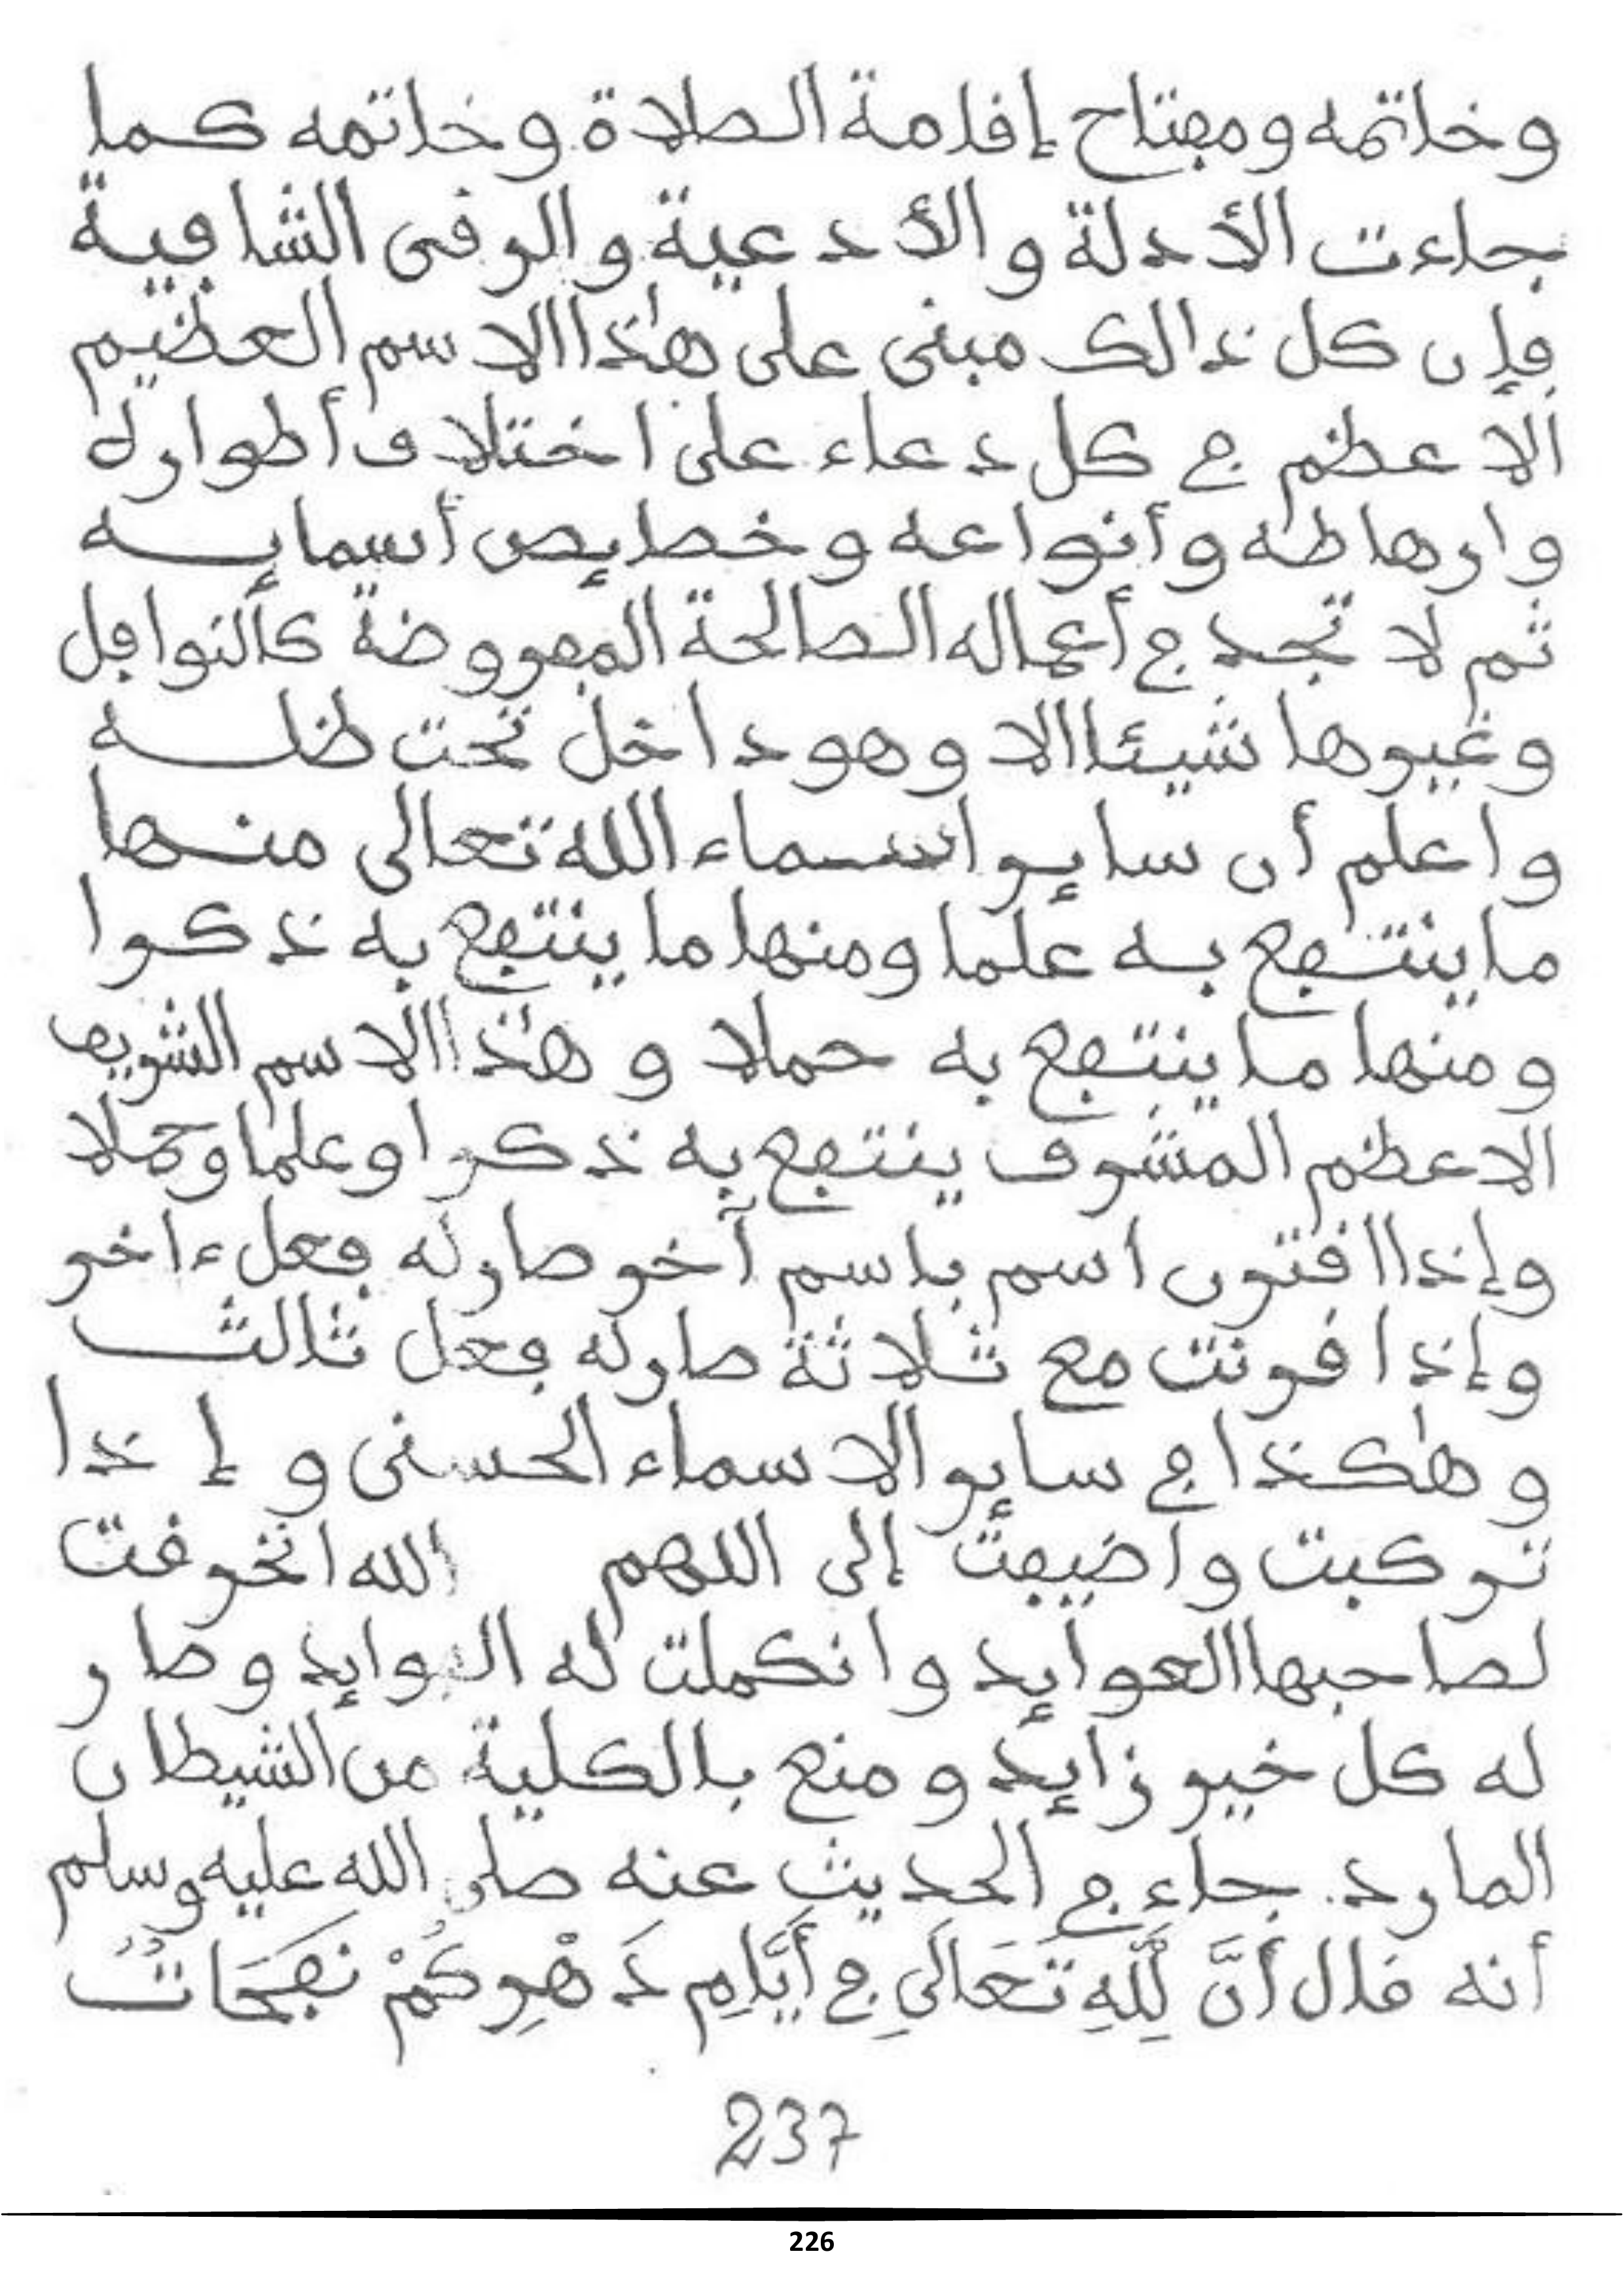 وخاتمه ومفتاح إقامة الصلاة وخاتمه كما
جاءت الأدلة والأدعية والرقى الشافية
فإن كل ذالك مبنى على هذا الاسم العظيم
الاعظم في كل دعاء على اختلاف أطواره
وارهاطه وأنواعه وخصايص أسمايه
ثم لا تجد في أعماله الصالحة المفروضة كالنوافل
وغيرها شيئا الا وهو داخل تحت ظله
واعلم أن ساير اسماء الله تعالى منها
ما ينتفع به علما ومنها ما ينتفع به ذكرا
ومنها ما ينتفع به حملا وهذا الاسم الشريف
الاعظم المشرف ينتفع به ذكرا وعلما وحملا
وإذا اقترن اسم باسم آخر صار له فعل ءاخر
وإذا قرنت مع ثلاثة صار له فعل ثالث
وهكذا في ساير الاسماء الحسنى وإذا
تركبت واضيفت إلى اللهم الله انخرقت
لصاحبها العوايد وانكملت له الفوايد وصار
له كل خير زايد ومنع بالكلية من الشيطان
المارد. جاء في الحديث عنه صلى الله عليه وسلم
أنه قال أَنَّ لِلَّهِ تَعَالَى فِي أَيَّامِ دَهْرِكُمْ نَفَحَاتٌ
237
226